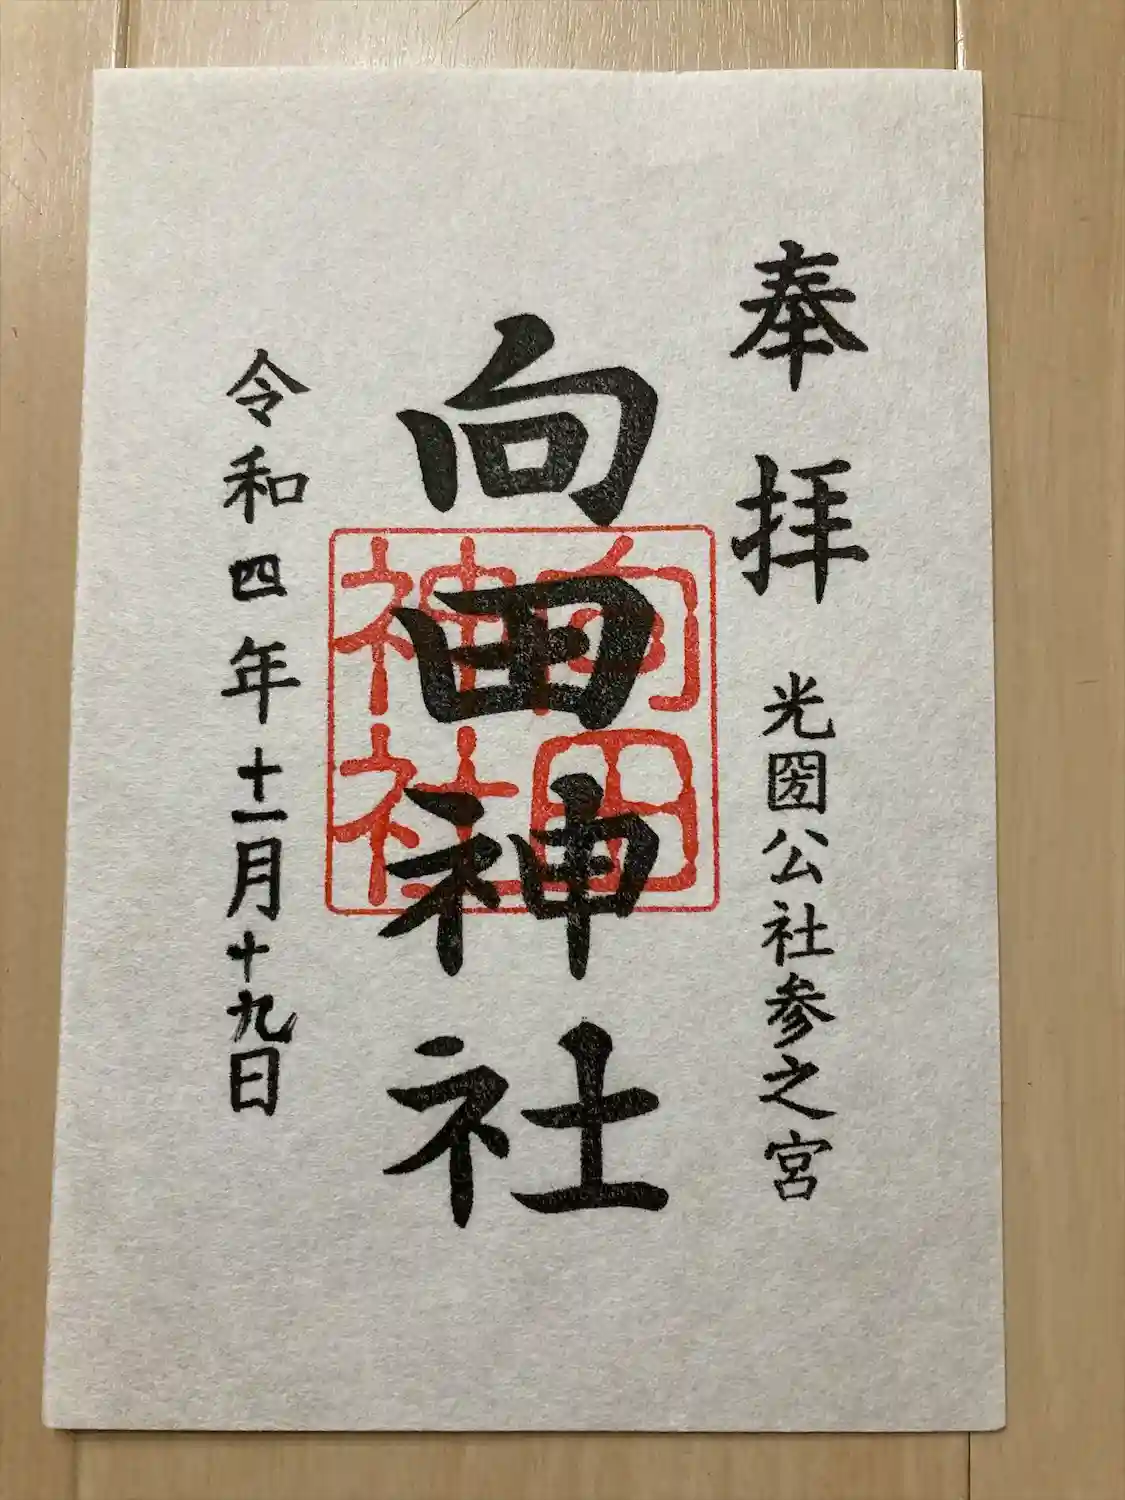 奉拝
光圀公社参之宮
向田神社
向田
神社
令和四年十一月十九日